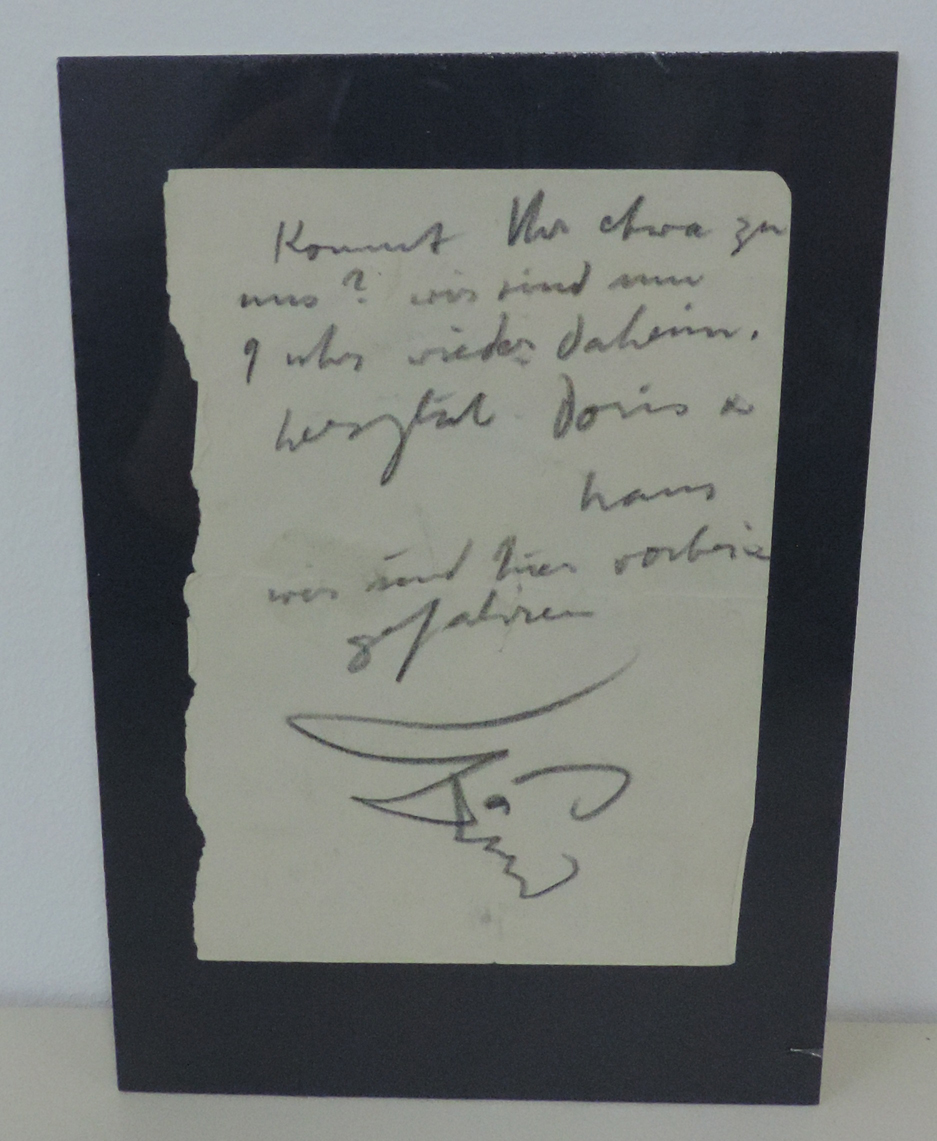 Kommt Ihr etwa zu
uns? wir sind um
9 uhr wieder daheim.
herzlich Doris &
hans
wir sind hier vorbei
gefahren